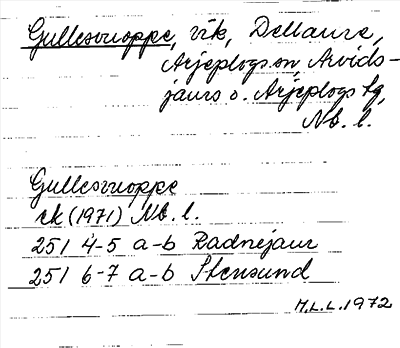 Gullesvuoppe, vik, Dellaure,
Arjeplogs sn, Arvids-
jaurs o. Arjeplogs tg,
Nb. l.
Gullesvuoppe
ek (1971) Nb. l.
251 4-5 a-b Radnejaur
251 6-7 a-b Stensund
M.L.L. 1972